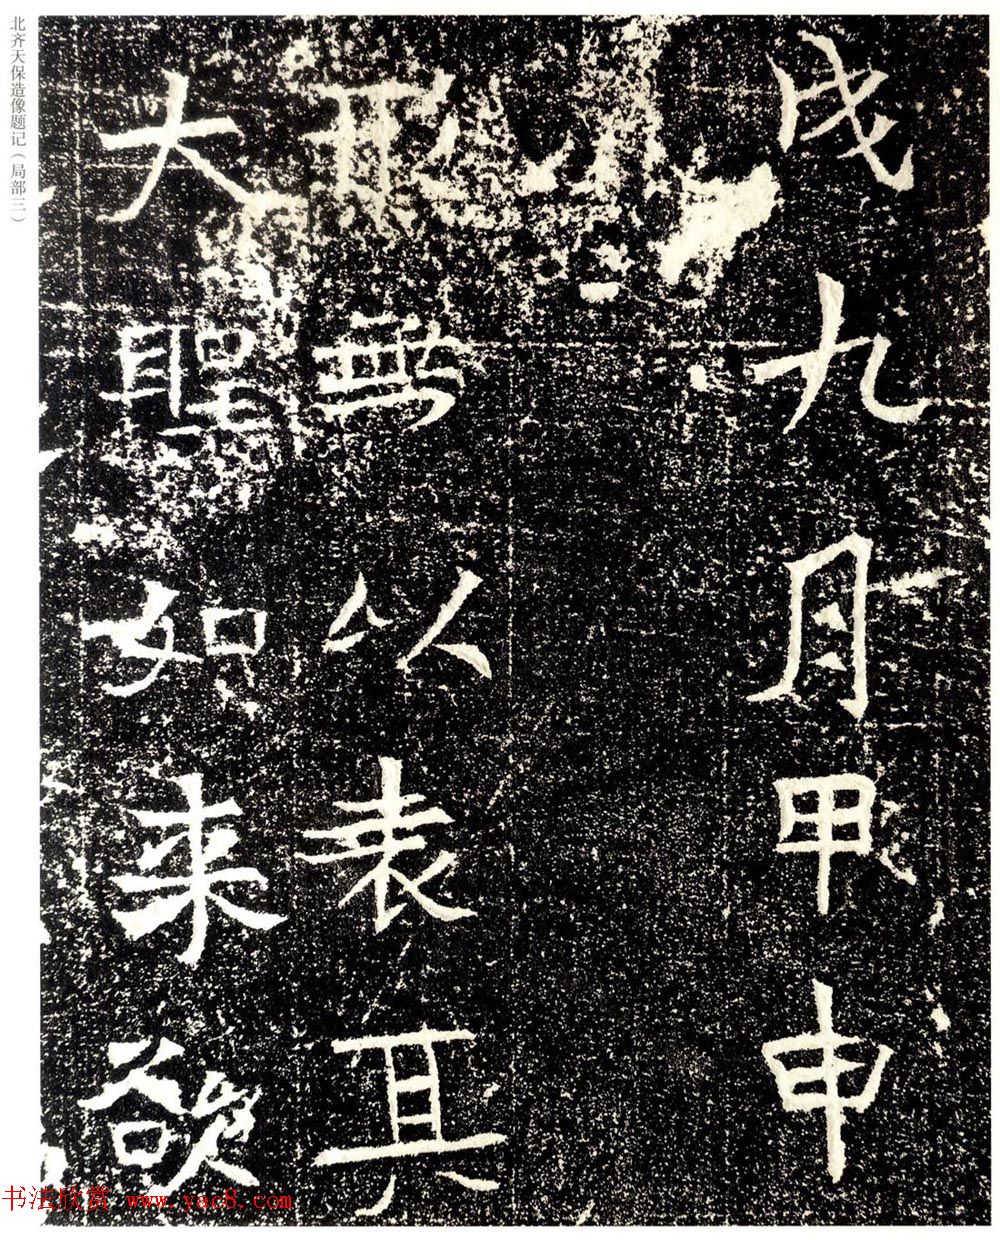 戌九月甲申
形無以表其
大聖如来欲
北齐天保造像题记（局部三）
书法欣赏 www.yac8.com